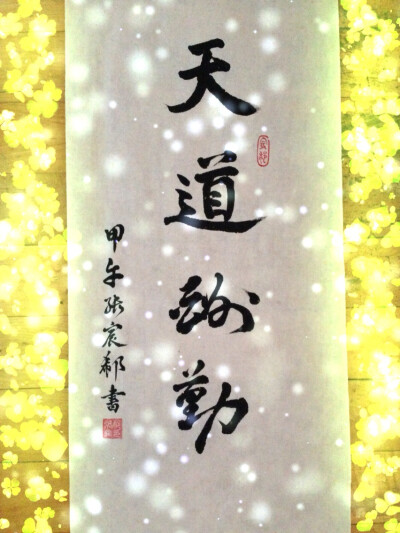 天道酬勤
甲午张宸郗書